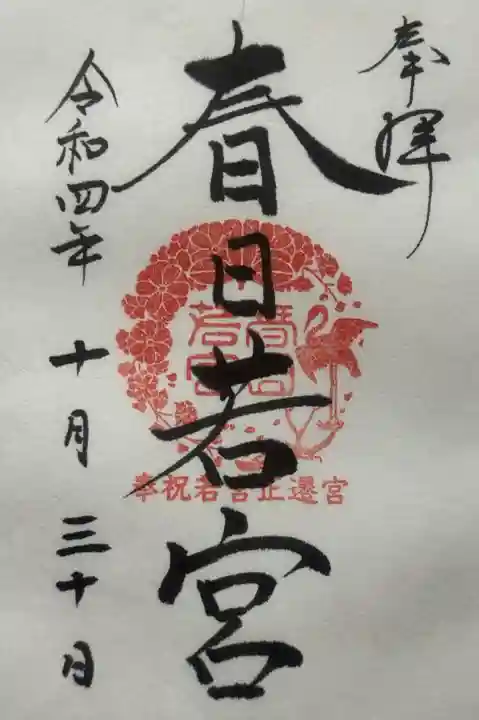 奉拝
春日若宮
令和四年 十月 三十日
春日
若宮
奉祝若宮正遷宮